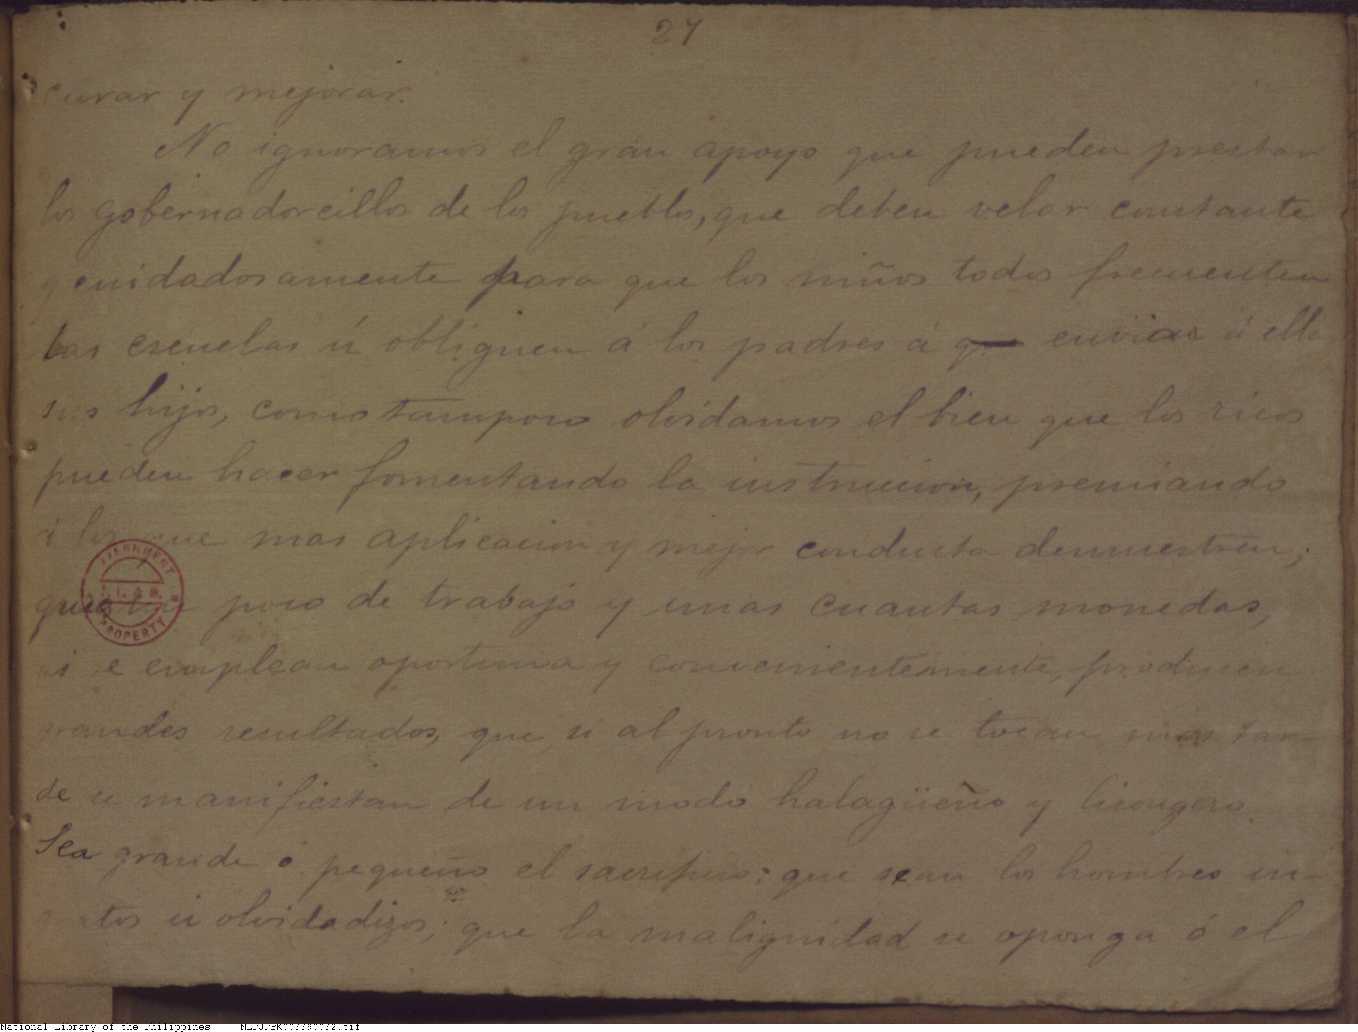 27
curar y mejorar.
No ignoramos el gran apoyo que pueden prestar
los gobernadorcillos de los pueblos, que deben velar constante
y cuidadosamente para que los niños todos frecuenten
las escuelas ú obliguen á los padres á enviar á ella
sus hijos, como tampoco olvidamos el bien que los ricos
pueden hacer fomentando la instruccion, premiando
á los que mas aplicacion y mejor conducta demuestren;
que un poco de trabajo y unas cuantas monedas,
si se emplean oportuna y convenientemente, producen
grandes resultados, que si al pronto no se tocan mas tar-
de se manifiestan de un modo halagüeño y lisongero.
Sea grande ó pequeño el sacrificio: que sean los hombres in-
gratos ú olvidadizos; que la malignidad se oponga ó el
GOVERNMENT PROPERTY
National Library of the Philippines